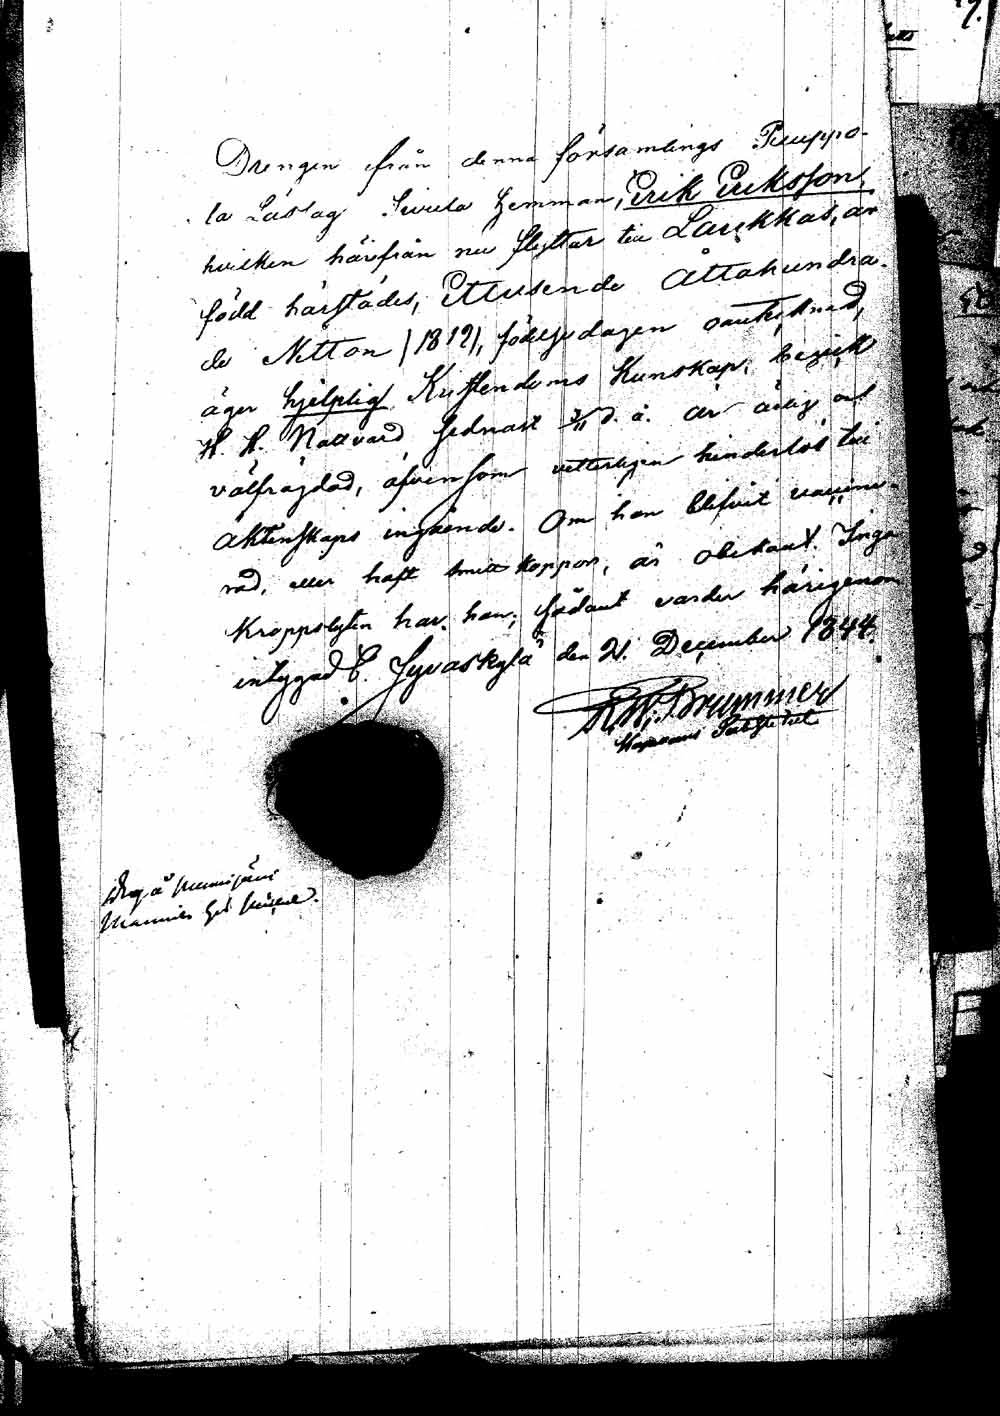 Drengen ifrån denna församlings Puuppo-
la Låstag Sivula hemman, Erik Eriksson,
hvilken härifrån nu flyttar till Laukkas, är
född härstädes, Ettusende Åttahundra-
de Nitton (1819), födelsedagen oantecknad,
äger hjelplig Kristendoms Kunskap, begick
H. H. Nattvard sednast d. å. är ärlig och
välfrägdad, äfvensom vetterligen hinderlös till
äktenskaps ingående. Om han blifvit vaccine-
rad, eller haft smittkoppor, är obekant. Inga
Kroppslyten har han; sådant varder härigenom
intygad E. Jyvaskylä den 21. December 1844.
Brummer
Kapellans Substitut